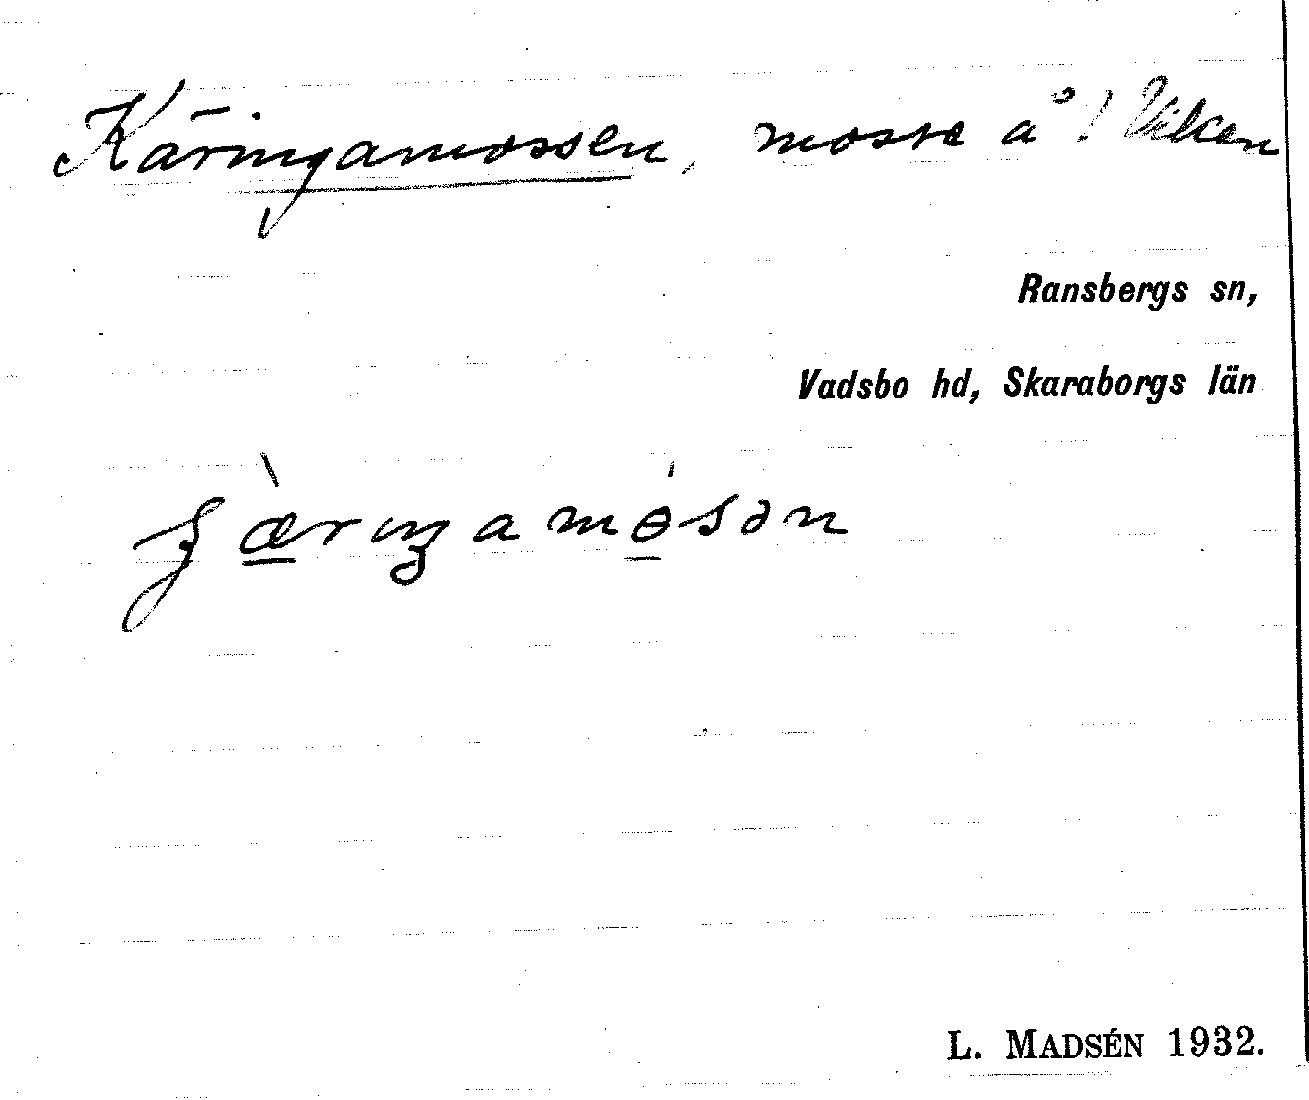 Käringamossen, mosse å ! Viken
Ransbergs sn,
Vadsbo hd, Skaraborgs län
L. MADSÉN 1932.